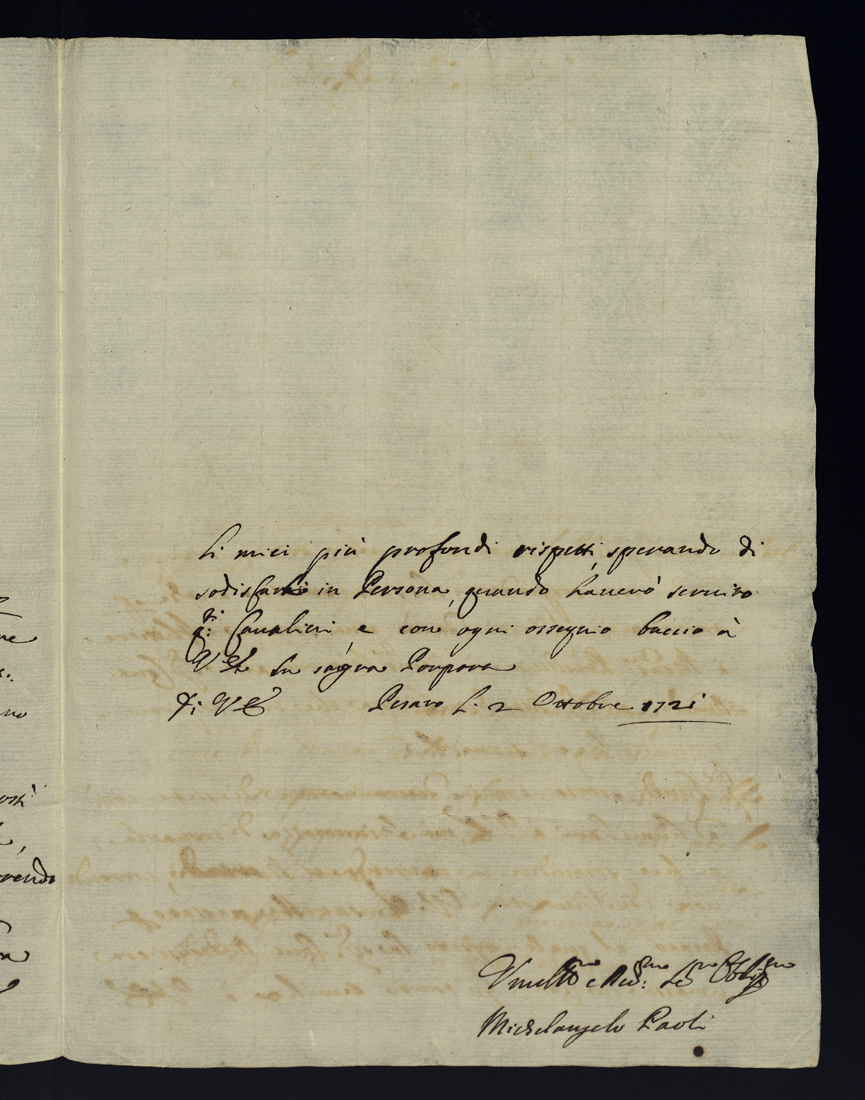 li miei più profondi rispetti, sperando di
sodisfarli in Persona, quando haverò servito
q:ti Cavalieri, e con ogni ossequio baccio à
V E la sagra Porpora
Di V E Pesaro li 2 Ottobre 1721
Umilmo e Devmo: Sre Obligmo
Michelangelo Paoli